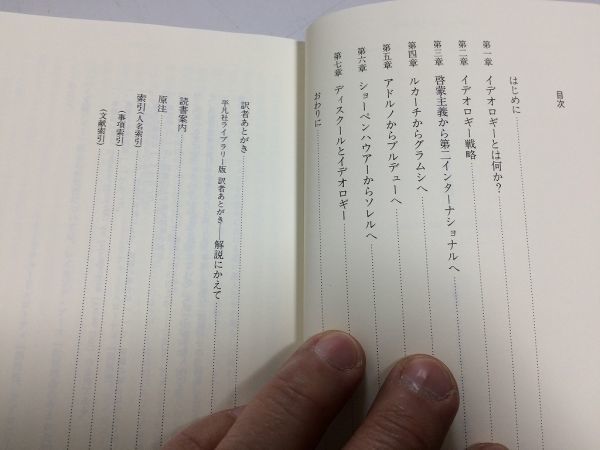 目次
はじめに
第一章 イデオロギーとは何か?
第二章 イデオロギー戦略
第三章 啓蒙主義から第二インターナショナルへ
第四章 ルカーチからグラムシへ
第五章 アドルノからブルデューへ
第六章 ショーペンハウアーからソレルへ
第七章 ディスクールとイデオロギー
おわりに
訳者あとがき
平凡社ライブラリー版 訳者あとがき——解説にかえて
読書案内
原注
索引(人名索引)
(事項索引)
(文献索引)